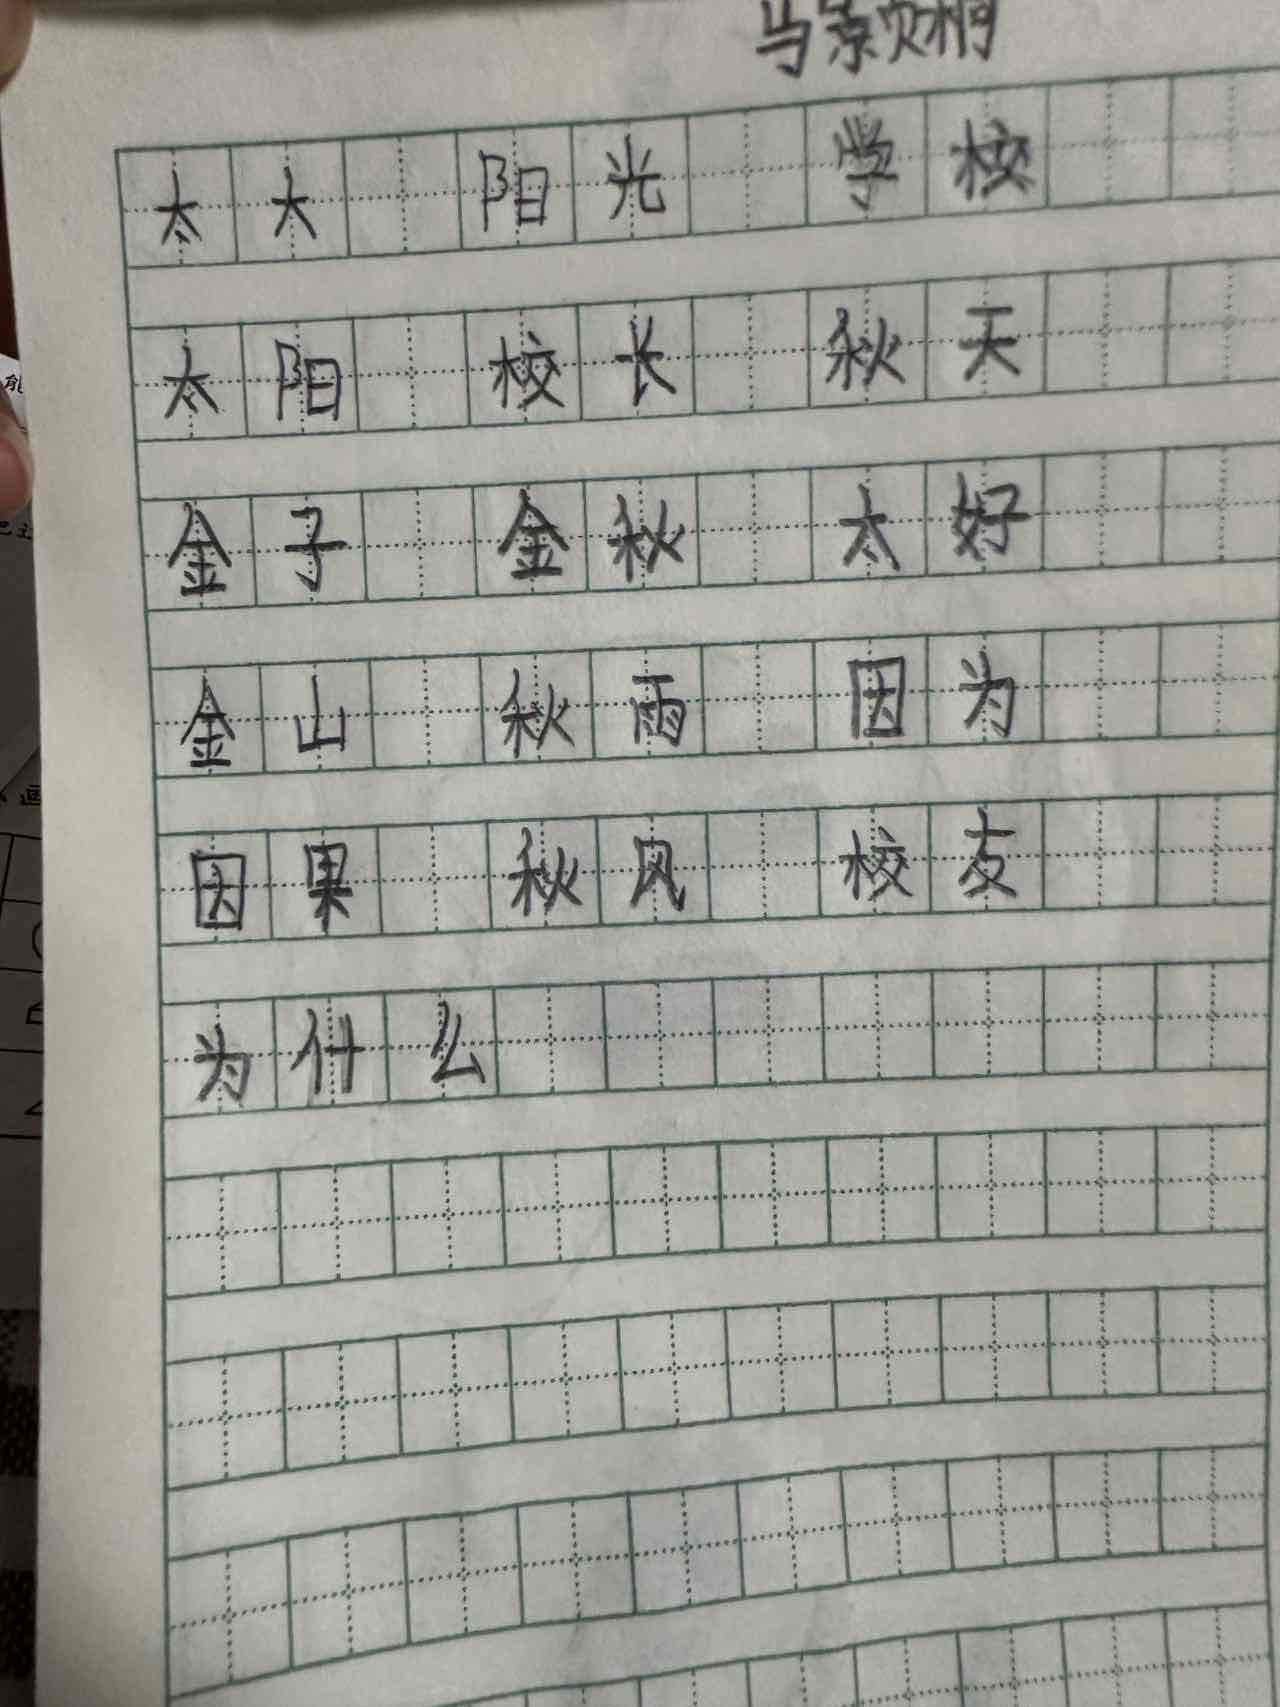 太大 阳光 学校
太阳 校长 秋天
金子 金秋 太好
金山 秋雨 因为
因果 秋风 校友
为什么
能
画